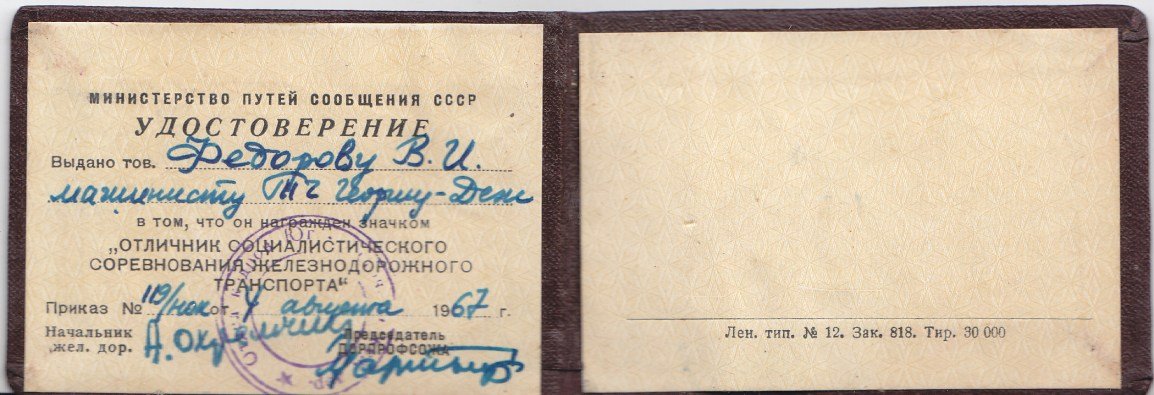 МИНИСТЕРСТВО ПУТЕЙ СООБЩЕНИЯ СССР
УДОСТОВЕРЕНИЕ
Выдано тов. Федорову В. И.
машинисту ТЧ Георгиу-Деж
в том, что он награжден значком
„ОТЛИЧНИК СОЦИАЛИСТИЧЕСКОГО
СОРЕВНОВАНИЯ ЖЕЛЕЗНОДОРОЖНОГО
ТРАНСПОРТА“
Приказ № 119/нок от 4 августа 1967 г.
Начальник
жел. дор.
Председатель
ДОРПРОФСОЖА
Лен. тип. № 12. Зак. 818. Тир. 30 000